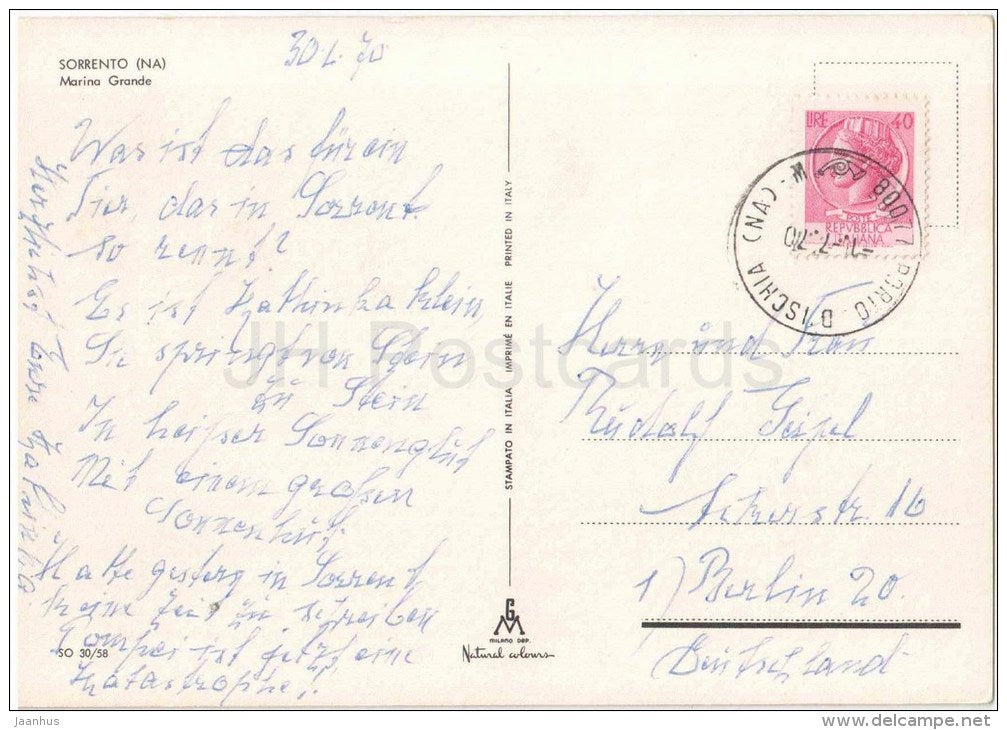 SORRENTO (NA)
Marina Grande
30.6.70
Was ist das für ein
Tier, das in Sorrent
so rennt?
Es ist Kathinka klein
Sie springt von Stein
zu Stein
In heißer Sonnenglut
Mit einem großen
Sonnenhut.
Hatte gestern in Sorrent
keine Zeit zu schreiben
Pompei ist jetzt eine
Katastrophe!
Herzlichst Eure Kathinka
SO 30/58
STAMPATO IN ITALIA IMPRIMÉ EN ITALIE PRINTED IN ITALY
GM
MILANO DEP.
Natural colours
LIRE 40
POSTE
REPVBBLICA
ITALIANA
80077 PORTO D'ISCHIA (NA)
-1.-7.70
Herrn und Frau
Rudolf
1) Berlin 20.
Deutschland
JH Postcards
Jaanhus
www.delcampe.net